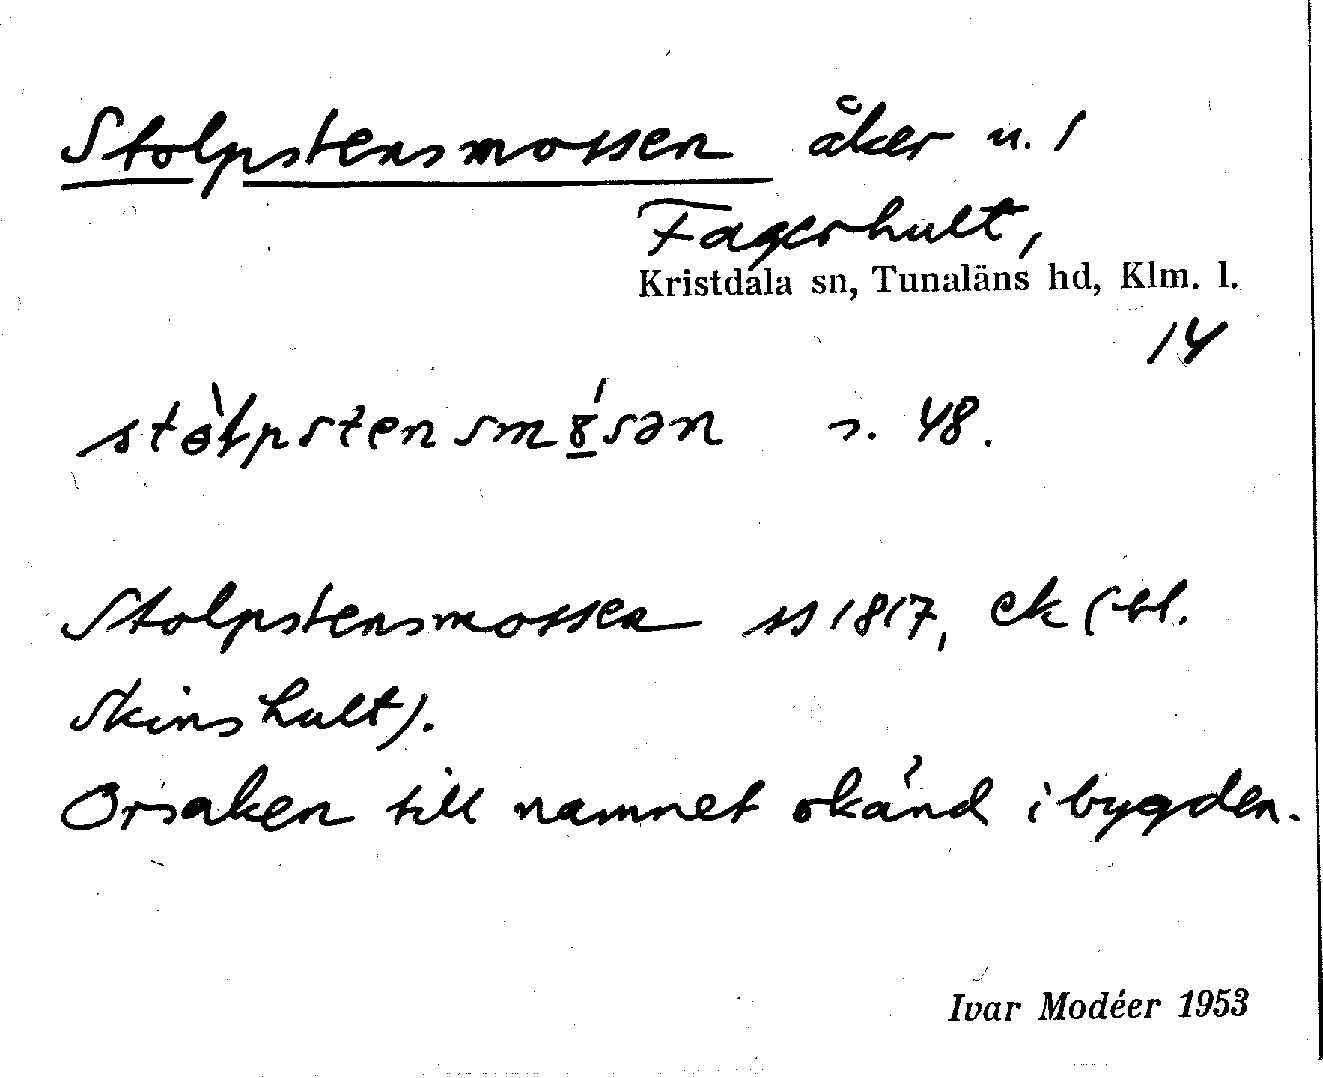 Stolpstensmossen åker u. 1
Fagerhult,
Kristdala sn, Tunaläns hd, Klm. l.
14
stòlpstensmó̱sən n. 48.
Stolpstensmossen ss 1817, ek (bl.
Skinshult).
Orsaken till namnet okänd i bygden.
Ivar Modéer 1953